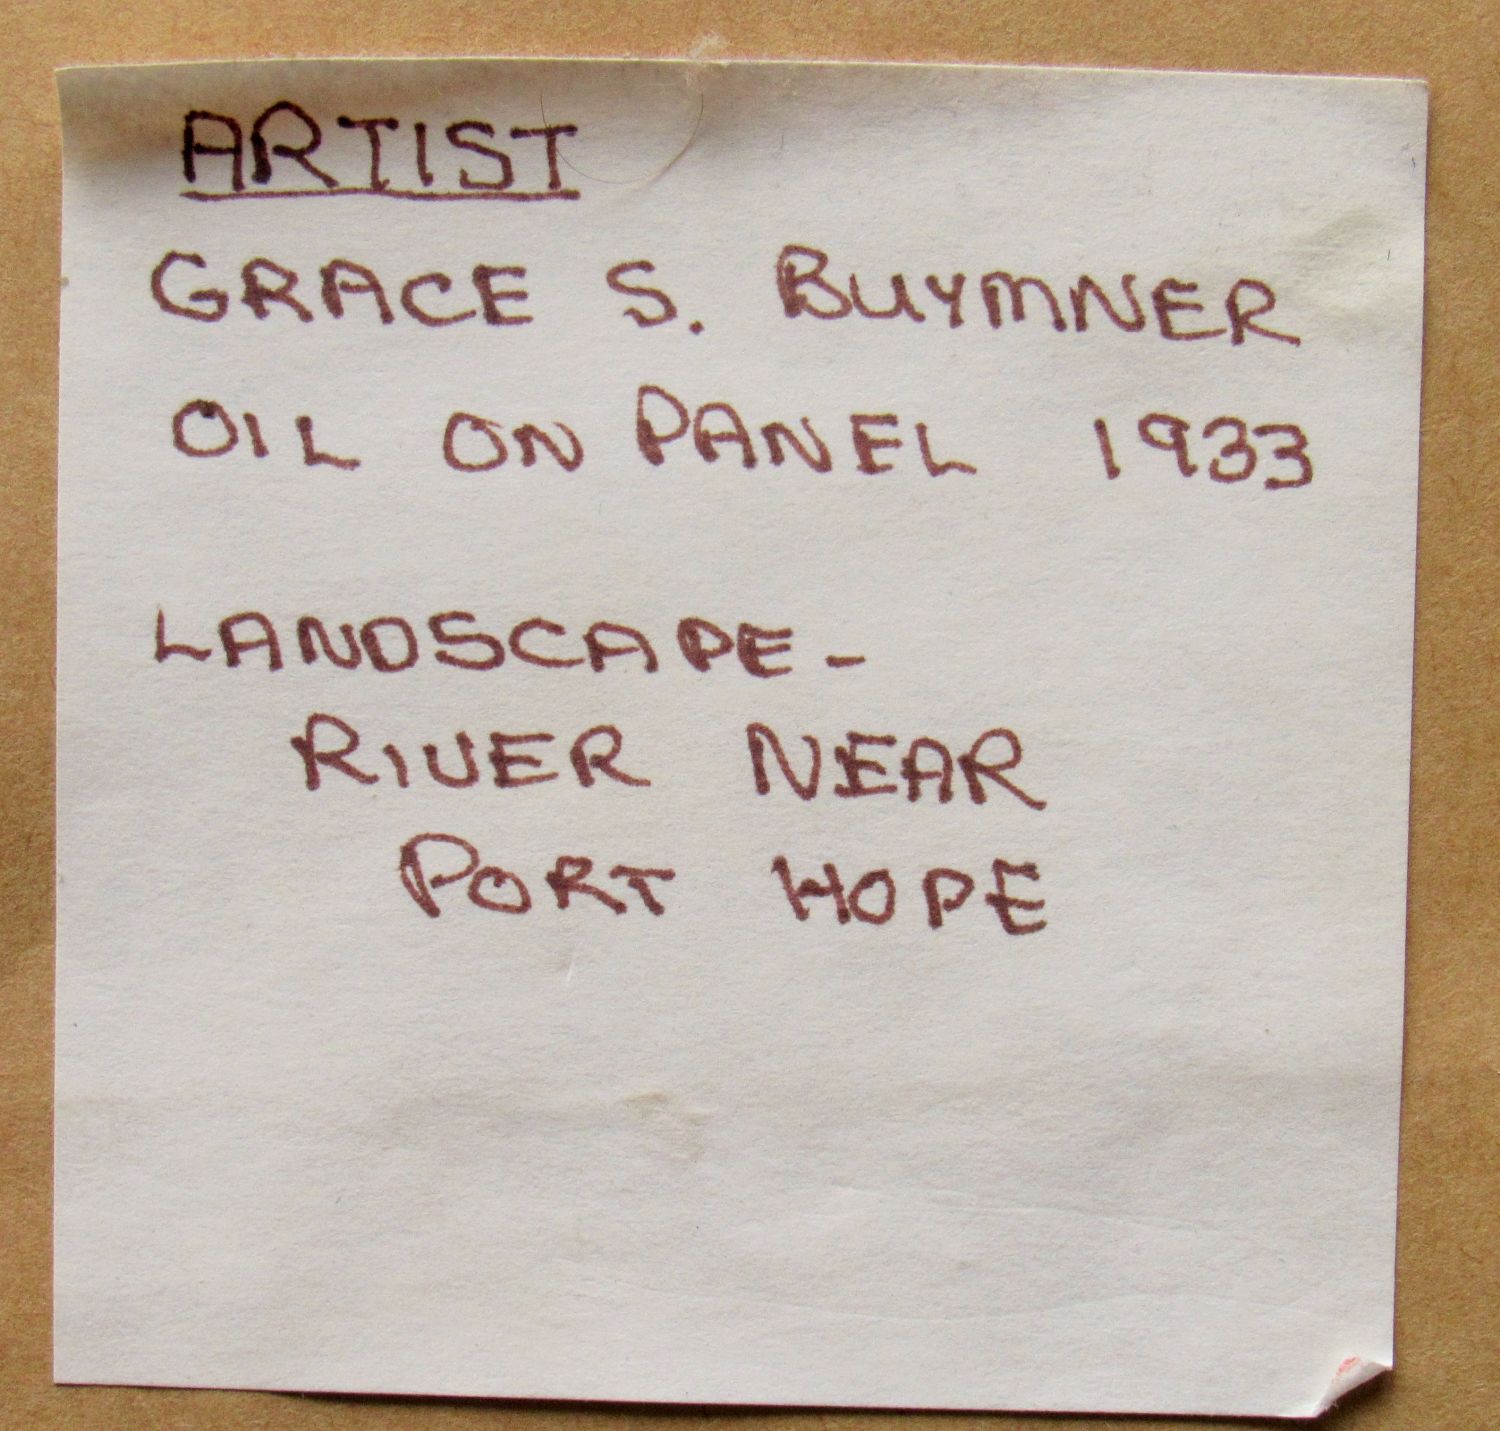 ARTIST
GRACE S. BUYMNER
OIL ON PANEL 1933
LANDSCAPE-
RIVER NEAR
PORT HOPE